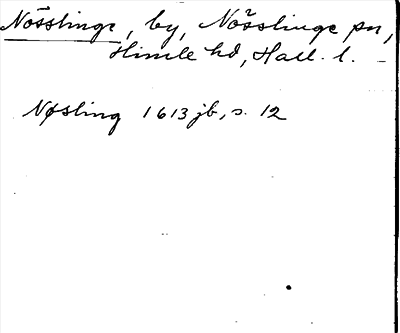 Nösslinge, by, Nösslinge sn,
Himle hd, Hall. l. –
Nøsling 1613 jb, s. 12